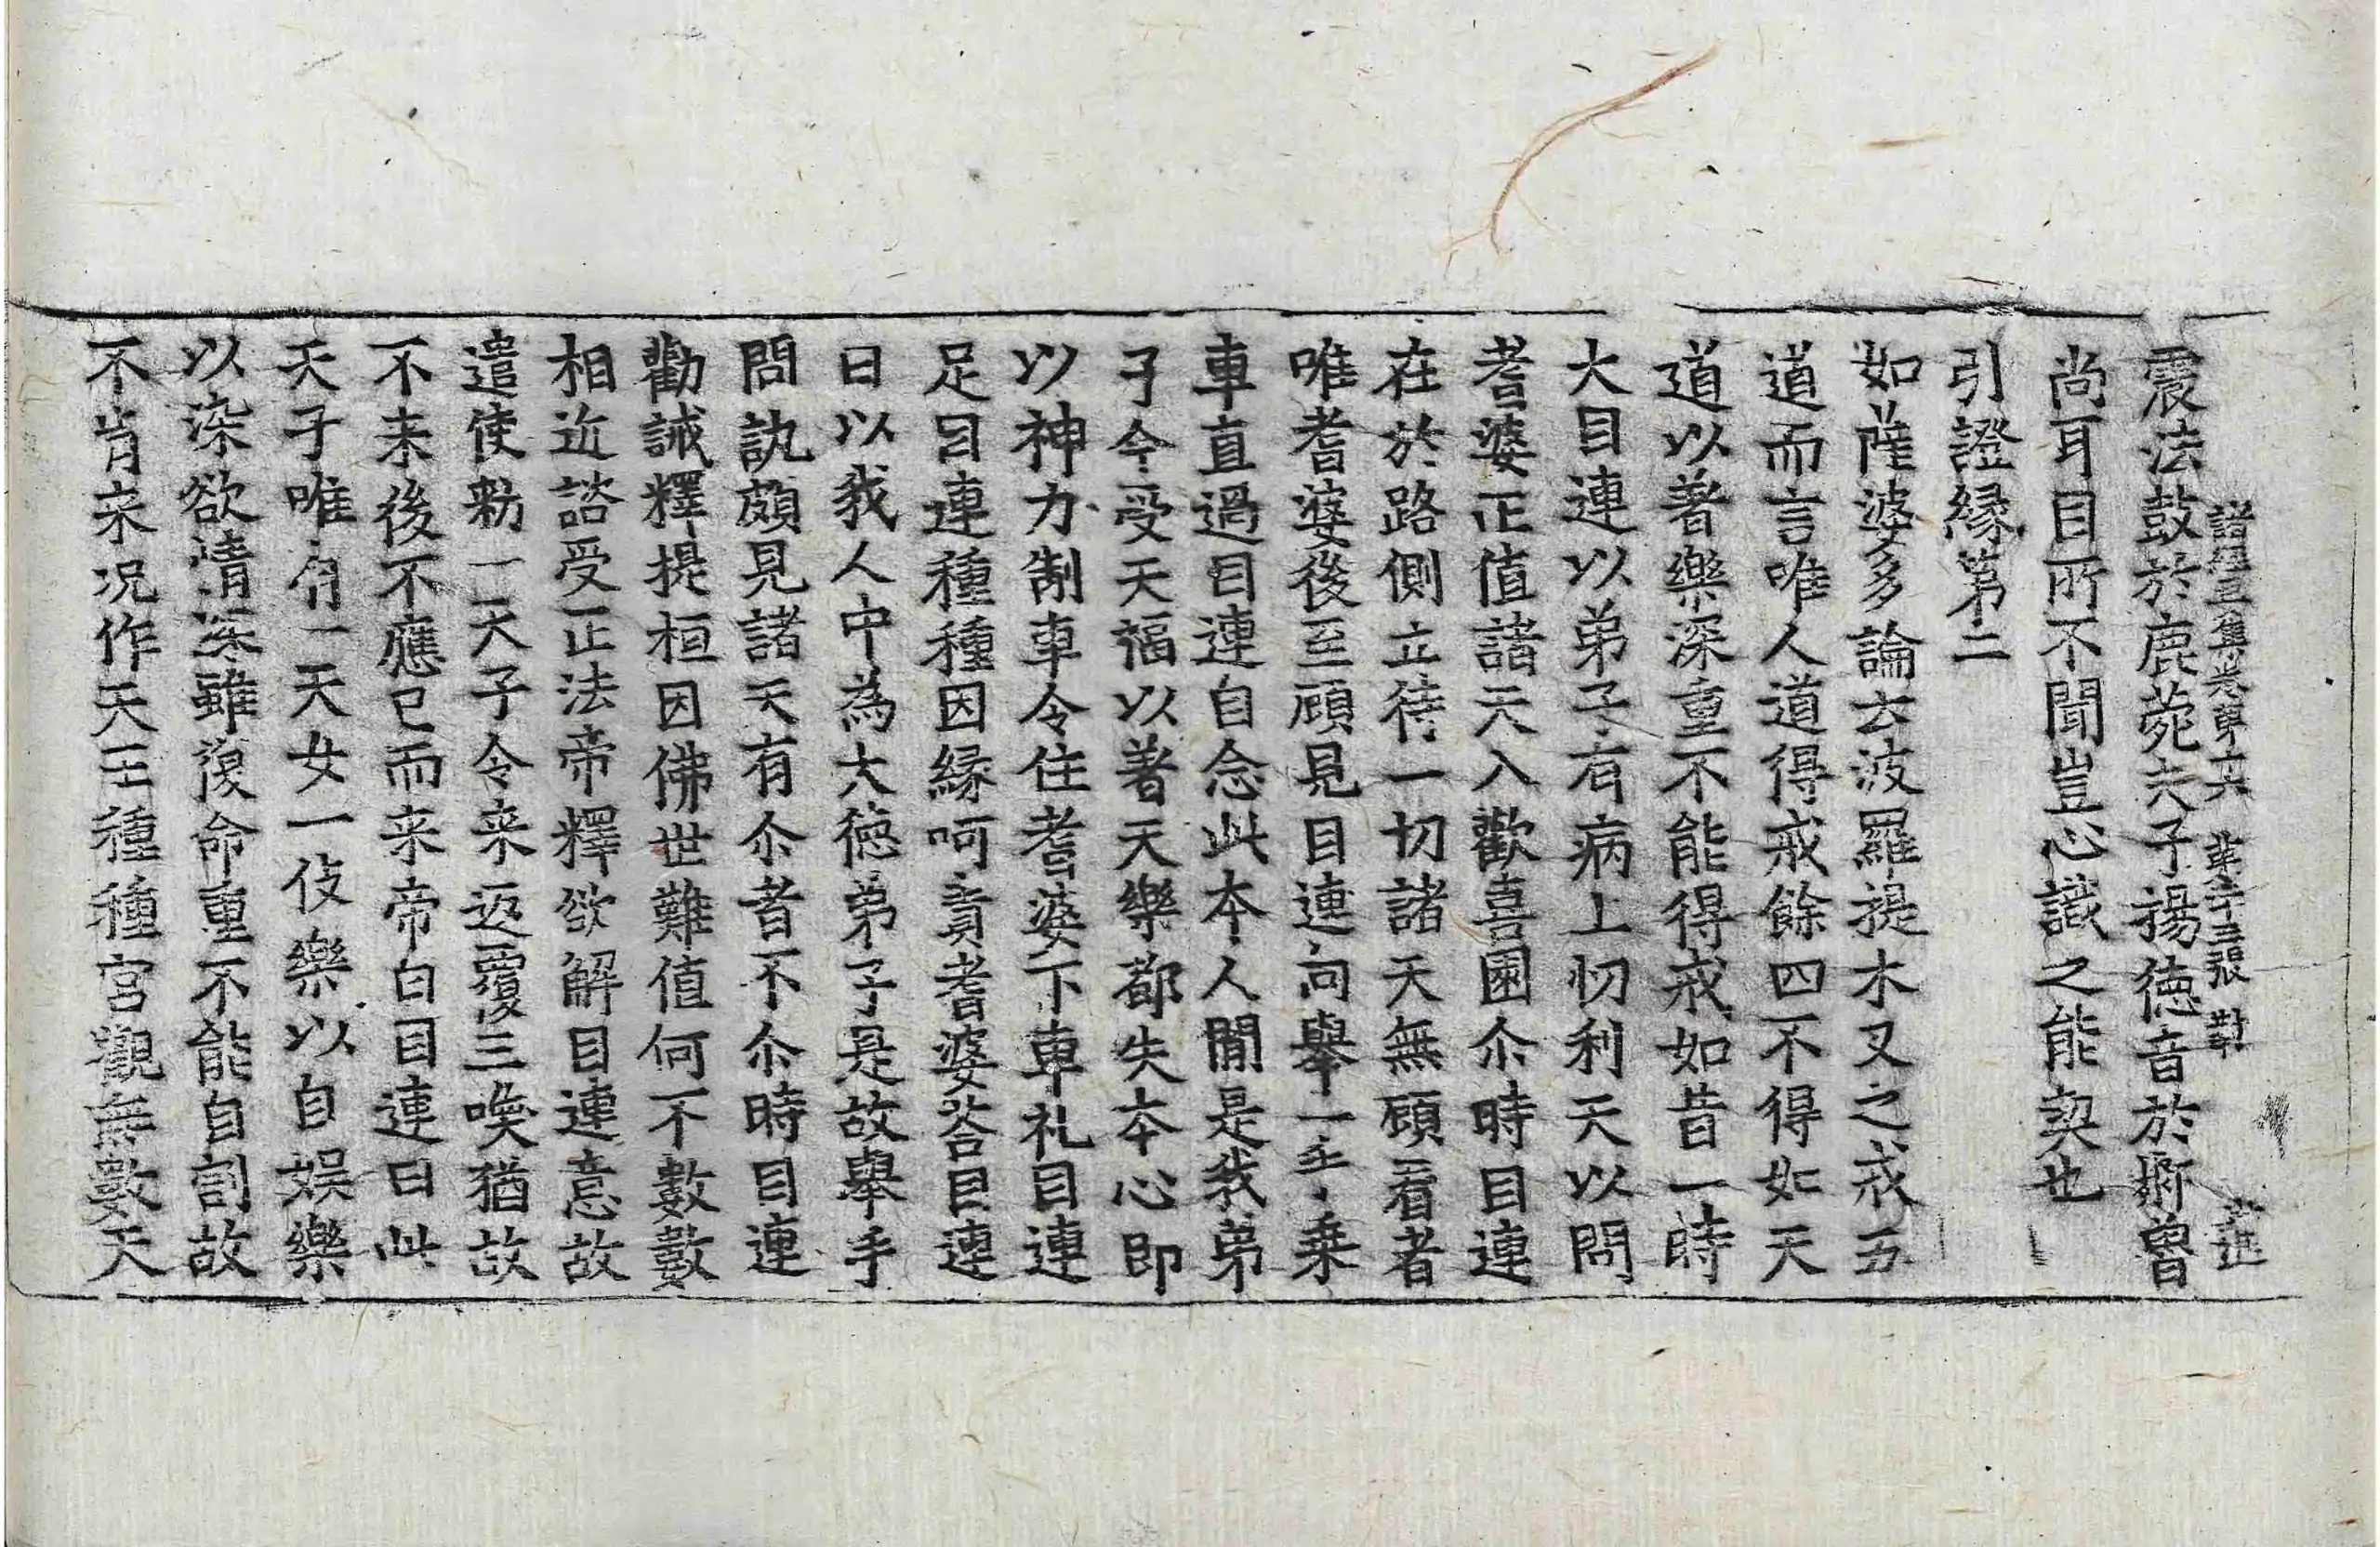 諸經要集卷第十六 第十三張 對
震法鼓於鹿菀夫子揚德音於鄒魯
尚耳目所不聞豈心識之能契也
引證緣第二
如薩婆多論云波羅提木叉之戒五
道而言唯人道得戒餘四不得如天
道以著樂深重不能得戒如昔一時
大目連以弟子有病上忉利天以問
耆婆正值諸天入歡喜園尒時目連
在於路側立待一切諸天無顧看者
唯耆婆後至顧見目連向舉一手乗
車直過目連自念此本人間是我弟
子今受天福以著天樂都失本心即
以神力制車令住耆婆下車礼目連
足目連種種因緣呵責耆婆荅目連
曰以我人中為大德弟子是故舉手
問訊頗見諸天有尒者不尒時目連
勸誡釋提桓因佛世難值何不數數
相近諮受正法帝釋欲解目連意故
遣使勑一天子令来返覆三喚猶故
不来後不應已而来帝白目連曰此
天子唯有一天女一伎樂以自娛樂
以染欲情深雖復命重不能自割故
不肯来况作天王種種宮觀無數天